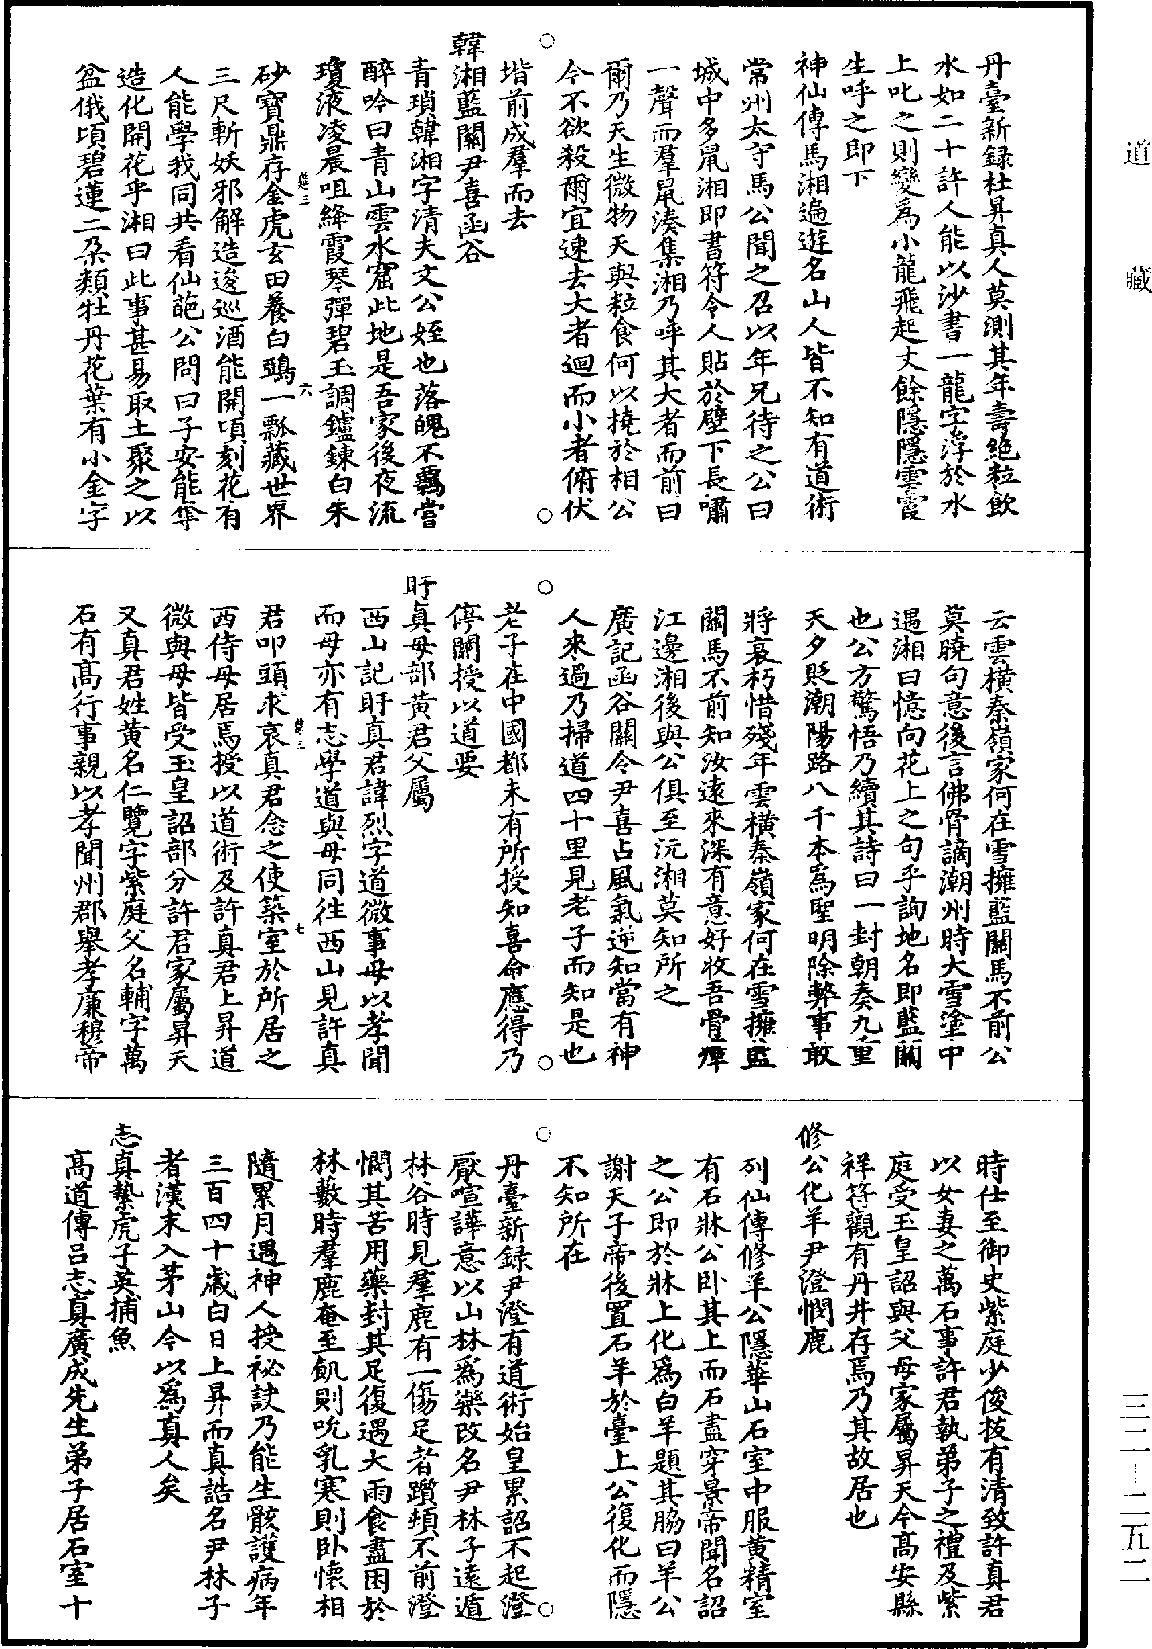 道藏
三二—二五二
丹臺新録杜昇真人莫測其年壽絶粒飲
水如二十許人能以沙書一龍字浮於水
上叱之則變爲小龍飛起丈餘隱隱雲霞
生呼之即下
神仙傳馬湘遍遊名山人皆不知有道術
常州太守馬公聞之召以年兄待之公曰
城中多鼠湘即書符令人貼於壁下長嘯
一聲而羣鼠湊集湘乃呼其大者而前曰
爾乃天生微物天與粒食何以撓於相公
今不欲殺爾宜速去大者迴而小者俯伏
堦前成羣而去
韓湘藍關尹喜函谷
青瑣韓湘字清夫文公姪也落魄不羈嘗
醉吟曰青山雲水窟此地是吾家後夜流
瓊液凌晨咀絳霞琴彈碧玉調鑪鍊白朱
砂寶鼎存金虎玄田養白鵶一瓢藏世界
三尺斬妖邪解造逡巡酒能開頃刻花有
人能學我同共看仙葩公問曰子安能奪
造化開花乎湘曰此事甚易取土聚之以
盆俄頃碧蓮二朶類牡丹花葉有小金字
云雲橫秦嶺家何在雪擁藍關馬不前公
莫曉句意後言佛骨謫潮州時大雪塗中
遇湘曰憶向花上之句乎詢地名即藍關
也公方驚悟乃續其詩曰一封朝奏九重
天夕貶潮陽路八千本爲聖明除弊事敢
將衰朽惜殘年雲橫秦嶺家何在雪擁藍
關馬不前知汝遠來深有意好收吾骨瘴
江邊湘後與公俱至沅湘莫知所之
廣記函谷關令尹喜占風氣逆知當有神
人來過乃掃道四十里見老子而知是也
老子在中國都未有所授知喜命應得乃
停關授以道要
盱眞母部黄君父屬
西山記盱真君諱烈字道微事母以孝聞
而母亦有志學道與母同往西山見許真
君叩頭求哀真君念之使築室於所居之
西侍母居焉授以道術及許真君上昇道
微與母皆受玉皇詔部分許君家屬昇天
又真君姓黄名仁覽字紫庭父名輔字萬
石有高行事親以孝聞州郡舉孝廉穆帝
時仕至御史紫庭少俊拔有清致許真君
以女妻之萬石事許君執弟子之禮及紫
庭受玉皇詔與父母家屬昇天今高安縣
祥符觀有丹井存焉乃其故居也
修公化羊尹澄憫鹿
列仙傳修羊公隱華山石室中服黄精室
有石牀公卧其上而石盡穿景帝聞名詔
之公即於牀上化爲白羊題其脇曰羊公
謝天子帝後置石羊於臺上公復化而隱
不知所在
丹臺新録尹澄有道術始皇累詔不起澄
厭喧譁意以山林爲樂改名尹林子遠遁
林谷時見羣鹿有一傷足者躓頓不前澄
憫其苦用藥封其足復遇大雨食盡困於
林藪時羣鹿奄至飢則吮乳寒則卧懷相
隨累月遇神人授祕訣乃能生骸護病年
三百四十歲白日上昇而真誥名尹林子
者漢末入茅山今以爲真人矣
志真墊虎子英捕魚
高道傳吕志真廣成先生弟子居石室十